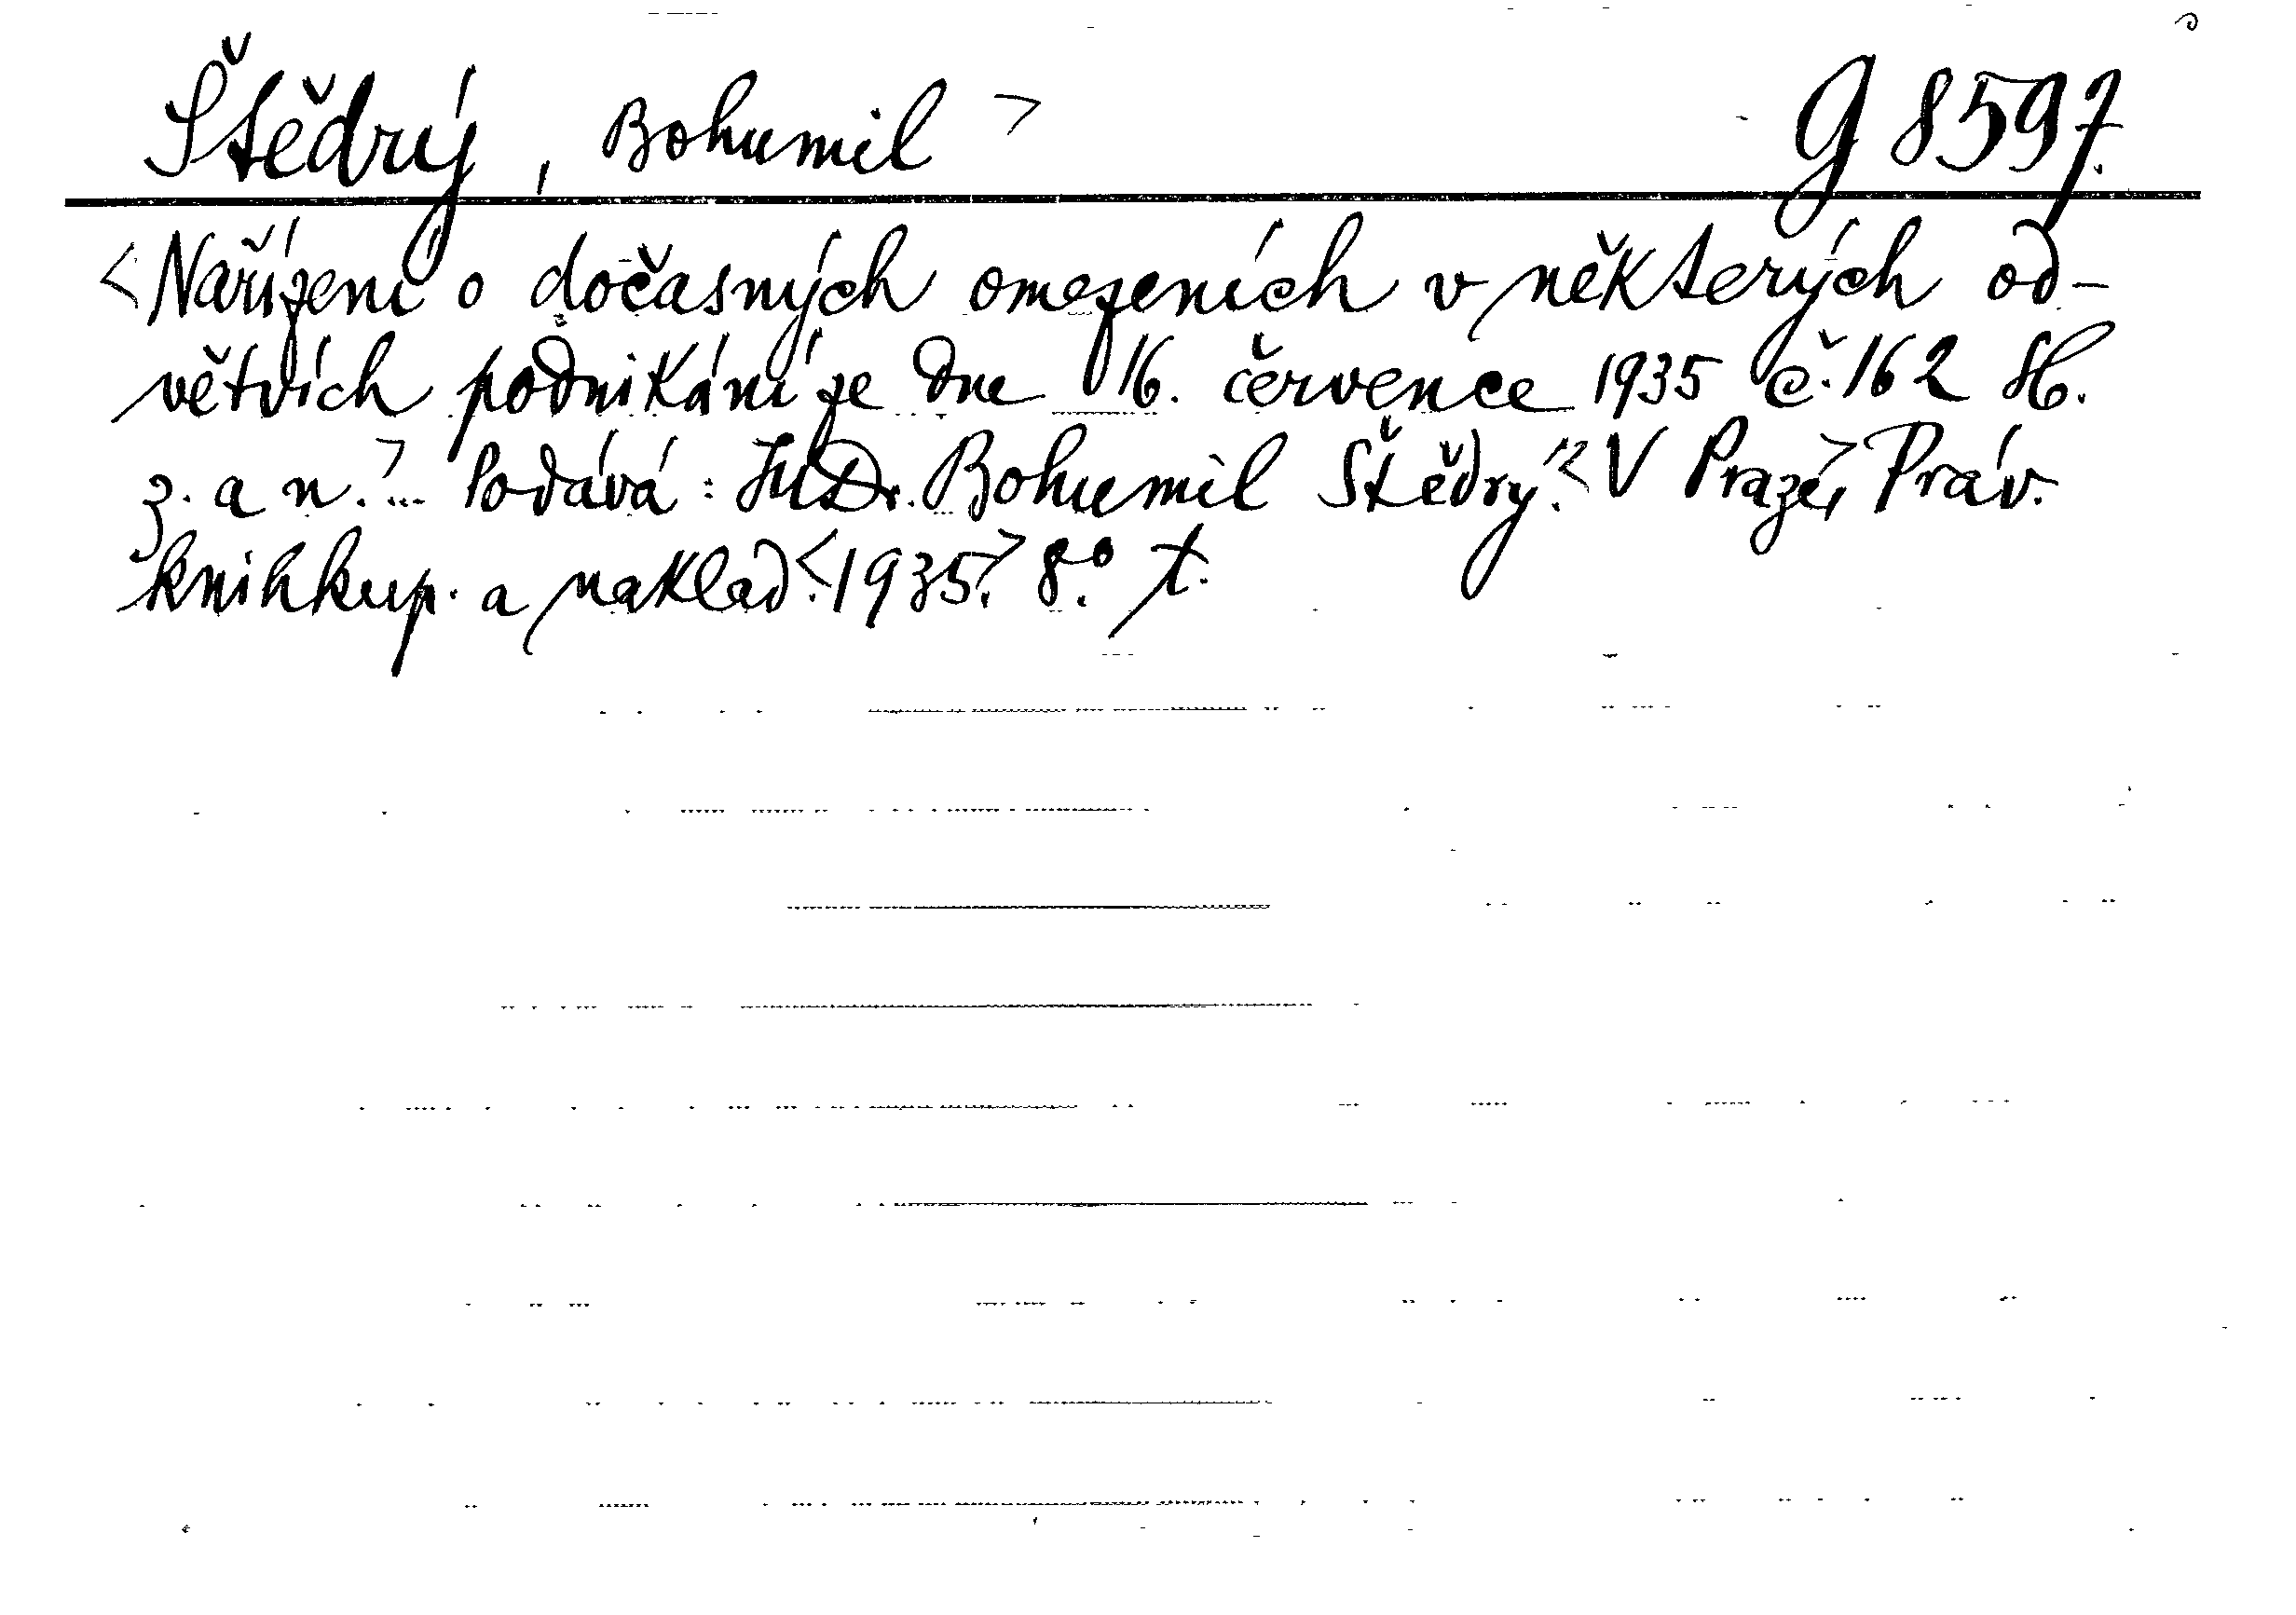 Štědrý, Bohumil > G 8597.
<Nařízení o dočasných omezeních v některých od-
větvích podnikání ze dne 16. července 1935 č. 162 Sb.
z. a n.> ... Podává: JUDr. Bohumil Štědrý.< V Praze,> Práv.
knihkup. a naklad.<1935.> 8°. t.